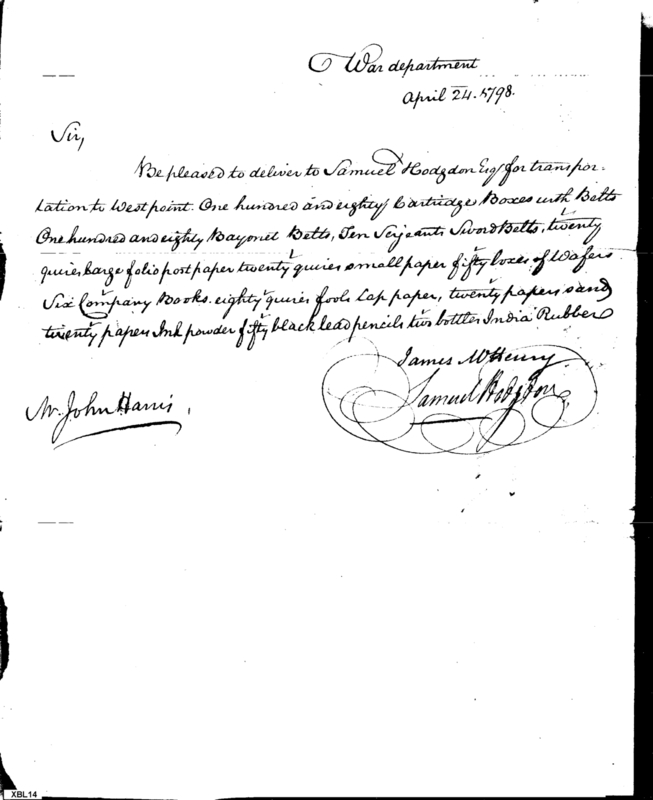 War department
April 24. 1798.
Sir,
Be pleased to deliver to Samuel Hodgdon Esqr for transpor-
tation to West point. One hundred and eighty Cartridge Boxes with Belts
One hundred and eighty Bayonet Belts, Ten Serjeants Sword Belts, twenty
quires large folio post paper twenty quires small paper fifty boxes of Wafers
Six Company Books. eighty quires fools Cap paper, twenty papers sand
twenty papers Ink powder fifty black lead pencils two bottles India Rubber
James McHenry
Samuel Hodgdon
Mr. John Harris,
XBL14